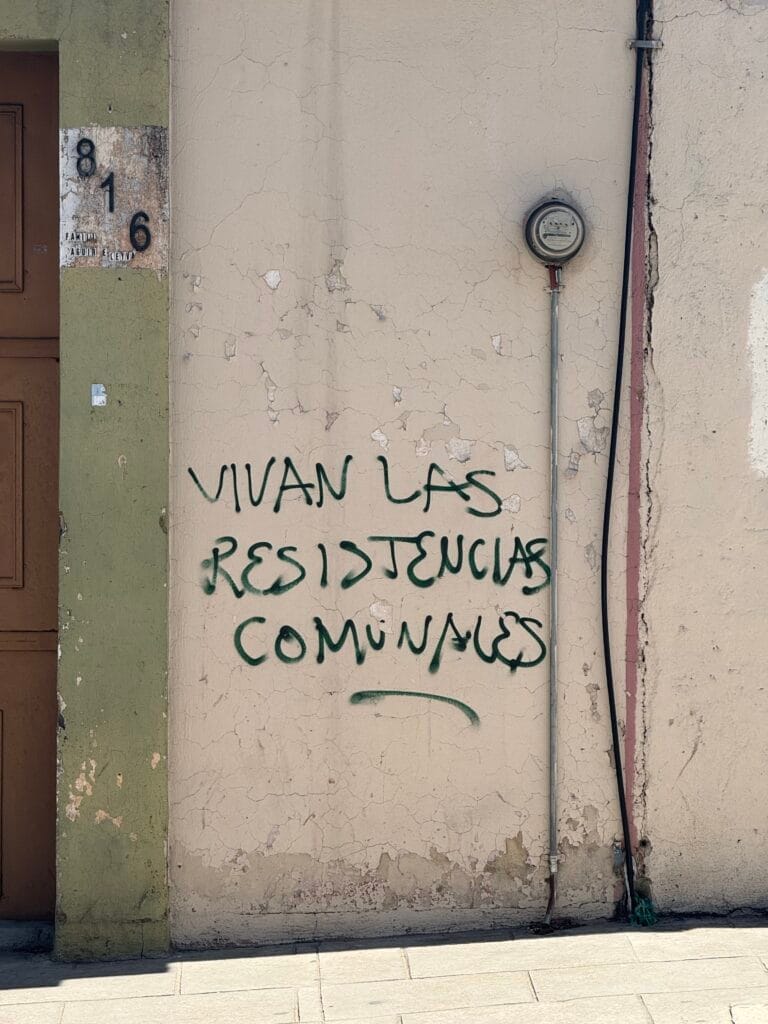 816
FAMILIA
VIVAN LAS
RESISTENCIAS
COMUNALES